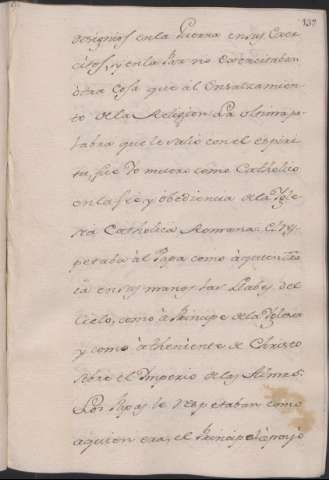 137
designios en la Guerra en sus Exer-
citos, y en la Paz no exercitaban
otra Cosa que al Ensalzamien-
to de la Religion. La ultima pa-
labra que le salio con el espiri-
tu, fue Yo muero como Catholico
en la feè y obediencia de la Ygle-
sia Catholica Romana. El res-
petaba al Papa como à quien te-
ia en sus manos las Llabes del
Cielo, como à Principe de la Yglesia
y como à theniente de Christo
sobre el Imperio de las Almas.
Los Papas le respetaban como
a quien era, el Principal apoyo